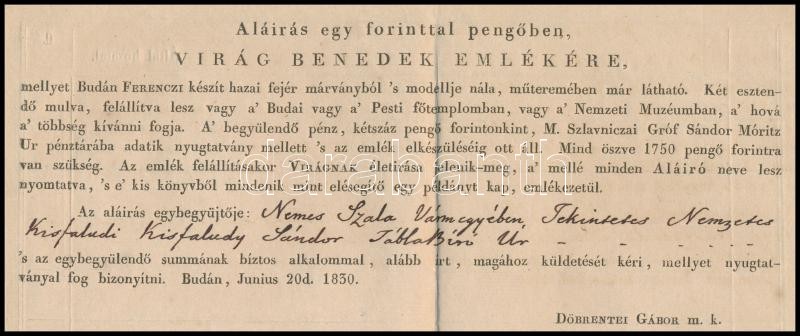 Aláirás egy forinttal pengőben,
VIRÁG BENEDEK EMLÉKÉRE,
mellyet Budán FERENCZI készít hazai fejér márványból 's modellje nála, műteremében már látható. Két eszten-
dő mulva, felállítva lesz vagy a' Budai vagy a' Pesti főtemplomban, vagy a' Nemzeti Muzéumban, a' hová
a' többség kívánni fogja. A' begyülendő pénz, kétszáz pengő forintonkint, M. Szlavniczai Gróf Sándor Móritz
Ur pénztárába adatik nyugtatvány mellett 's az emlék elkészüléséig ott áll. Mind öszve 1750 pengő forintra
van szükség. Az emlék felállításakor VIRÁGNAK életirása jelenik-meg, a' mellé minden Aláiró neve lesz
nyomtatva, 's e' kis könyvből mindenik mint elésegítő egy példányt kap, emlékezetül.
Az aláirás egybegyüjtője: Nemes Szala Vármegyében, Tekintetes Nemzetes
Kisfaludi Kisfaludy Sándor TáblaBiró Ur – – – – –
's az egybegyülendő summának bíztos alkalommal, alább írt, magához küldetését kéri, mellyet nyugtat-
ványal fog bizonyítni. Budán, Junius 20d. 1830.
DÖBRENTEI GÁBOR m. k.
darabanth